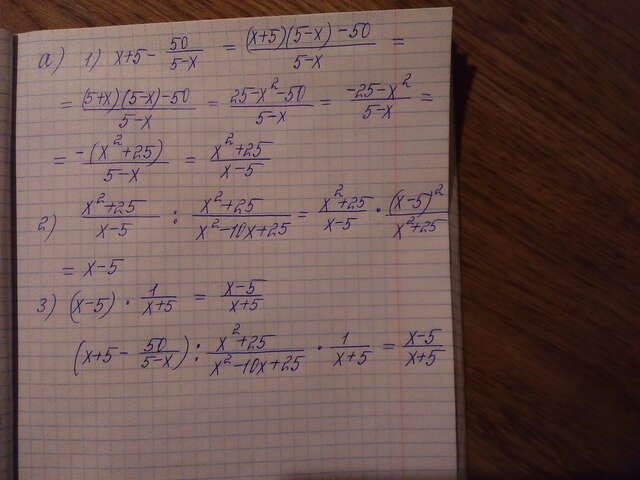 а) 1) x+5 - 50/(5-x) = ((x+5)(5-x)-50)/(5-x) =
= ((5+x)(5-x)-50)/(5-x) = (25-x²-50)/(5-x) = (-25-x²)/(5-x) =
= (-(x²+25))/(5-x) = (x²+25)/(x-5)
2) (x²+25)/(x-5) : (x²+25)/(x²-10x+25) = (x²+25)/(x-5) · (x-5)²/(x²+25)
= x-5
3) (x-5) · 1/(x+5) = (x-5)/(x+5)
(x+5 - 50/(5-x)) : (x²+25)/(x²-10x+25) · 1/(x+5) = (x-5)/(x+5)